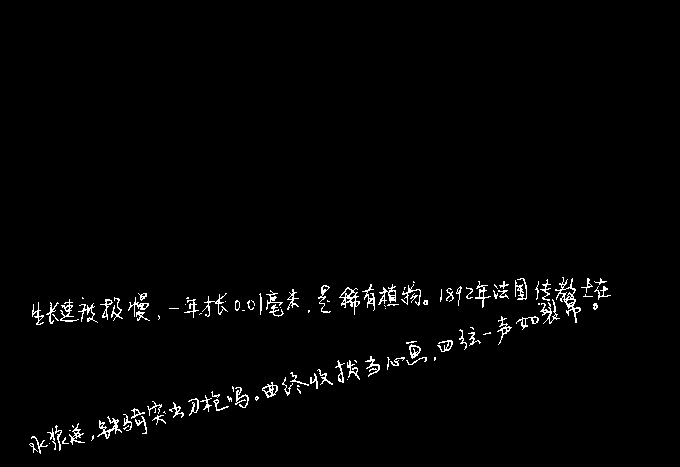 生长速度极慢，一年才长0.01毫米，是稀有植物。1892年法国传教士在
水浆迸，铁骑突出刀枪鸣。曲终收拨当心画，四弦一声如裂帛。